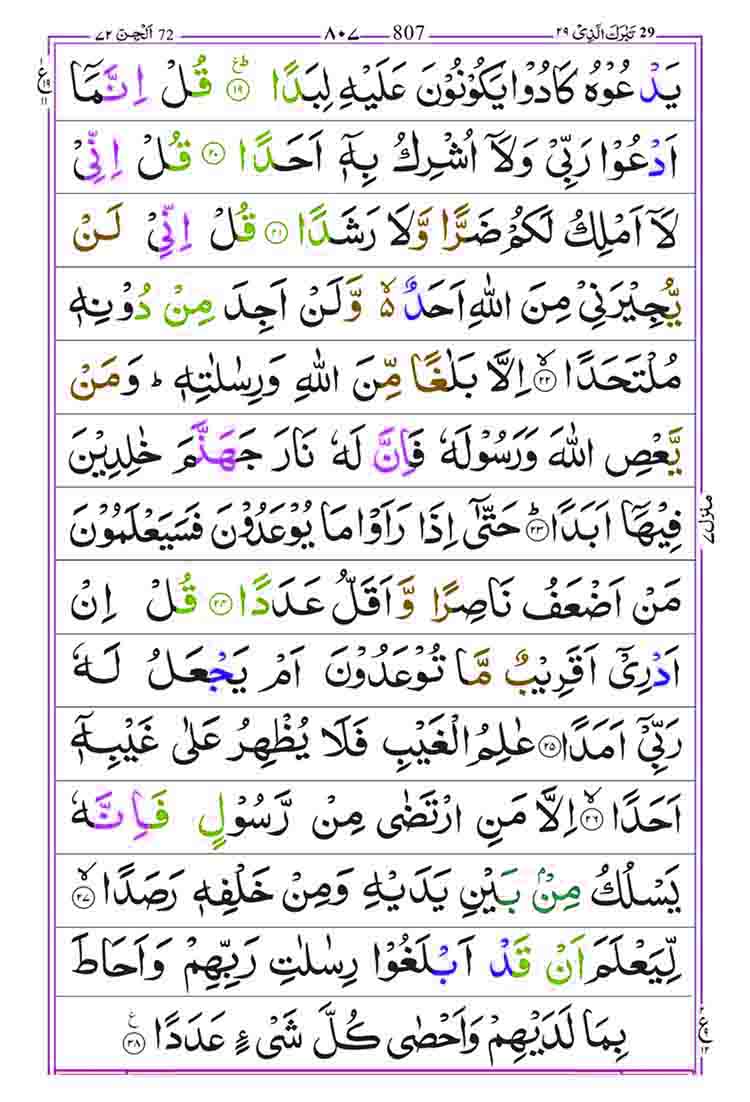 29 تَبٰرَكَ الَّذِیْ ۲۹ 807 ۸۰۷ 72 اَلْجِنّ ۷۲
یَدْعُوْهُ كَادُوْا یَكُوْنُوْنَ عَلَیْهِ لِبَدًا ؕ۱۹ قُلْ اِنَّمَاۤ
اَدْعُوْا رَبِّیْ وَلَاۤ اُشْرِكُ بِهٖۤ اَحَدًا ۲۰ قُلْ اِنِّیْ
لَاۤ اَمْلِكُ لَكُمْ ضَرًّا وَّلَا رَشَدًا ۲۱ قُلْ اِنِّیْ لَنْ
یُّجِیْرَنِیْ مِنَ اللّٰهِ اَحَدٌ ۙ۬ وَّلَنْ اَجِدَ مِنْ دُوْنِهٖ
مُلْتَحَدًا ۙ۲۲ اِلَّا بَلٰغًا مِّنَ اللّٰهِ وَرِسٰلٰتِهٖ ؕ وَمَنْ
یَّعْصِ اللّٰهَ وَرَسُوْلَهٗ فَاِنَّ لَهٗ نَارَ جَهَنَّمَ خٰلِدِیْنَ
فِیْهَاۤ اَبَدًا ؕ۲۳ حَتّٰۤی اِذَا رَاَوْا مَا یُوْعَدُوْنَ فَسَیَعْلَمُوْنَ
مَنْ اَضْعَفُ نَاصِرًا وَّاَقَلُّ عَدَدًا ۲۴ قُلْ اِنْ
اَدْرِیْۤ اَقَرِیْبٌ مَّا تُوْعَدُوْنَ اَمْ یَجْعَلُ لَهٗ
رَبِّیْۤ اَمَدًا ۲۵ عٰلِمُ الْغَیْبِ فَلَا یُظْهِرُ عَلٰی غَیْبِهٖۤ
اَحَدًا ۙ۲۶ اِلَّا مَنِ ارْتَضٰی مِنْ رَّسُوْلٍ فَاِنَّهٗ
یَسْلُكُ مِنْۢ بَیْنِ یَدَیْهِ وَمِنْ خَلْفِهٖ رَصَدًا ۙ۲۷
لِّیَعْلَمَ اَنْ قَدْ اَبْلَغُوْا رِسٰلٰتِ رَبِّهِمْ وَاَحَاطَ
بِمَا لَدَیْهِمْ وَاَحْصٰی كُلَّ شَیْءٍ عَدَدًا ۲۸
منزل ۷